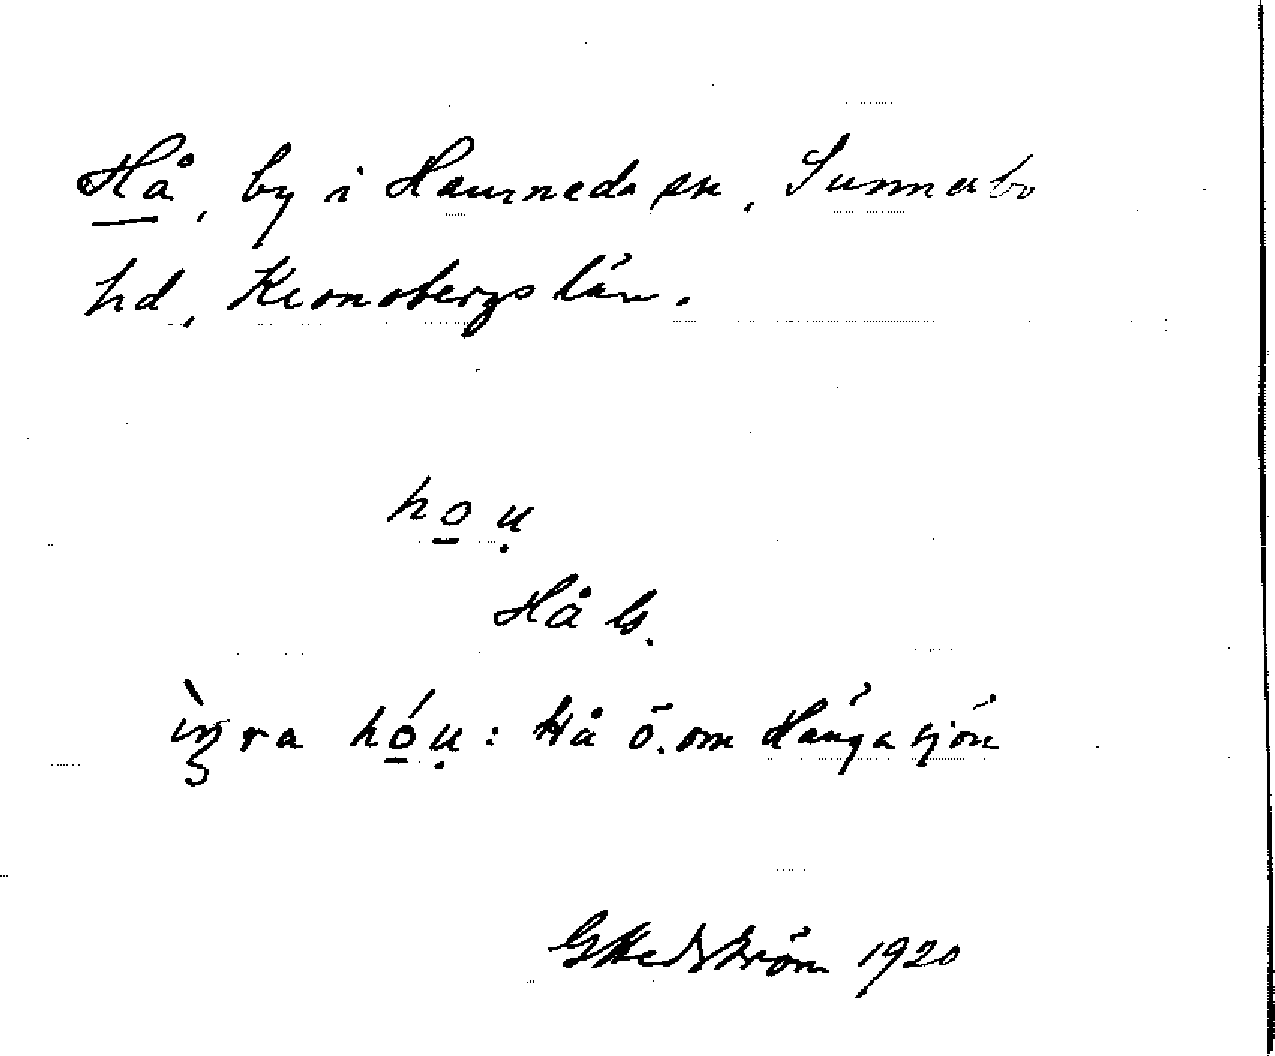 Hå, by i Hamneda sn, Sunnerbo
hd, Kronobergs län.
ho̲ ụ
Hå G.
ìŋra hó̲ụ: Hå ö. om Hångasjön
G Hedström 1920